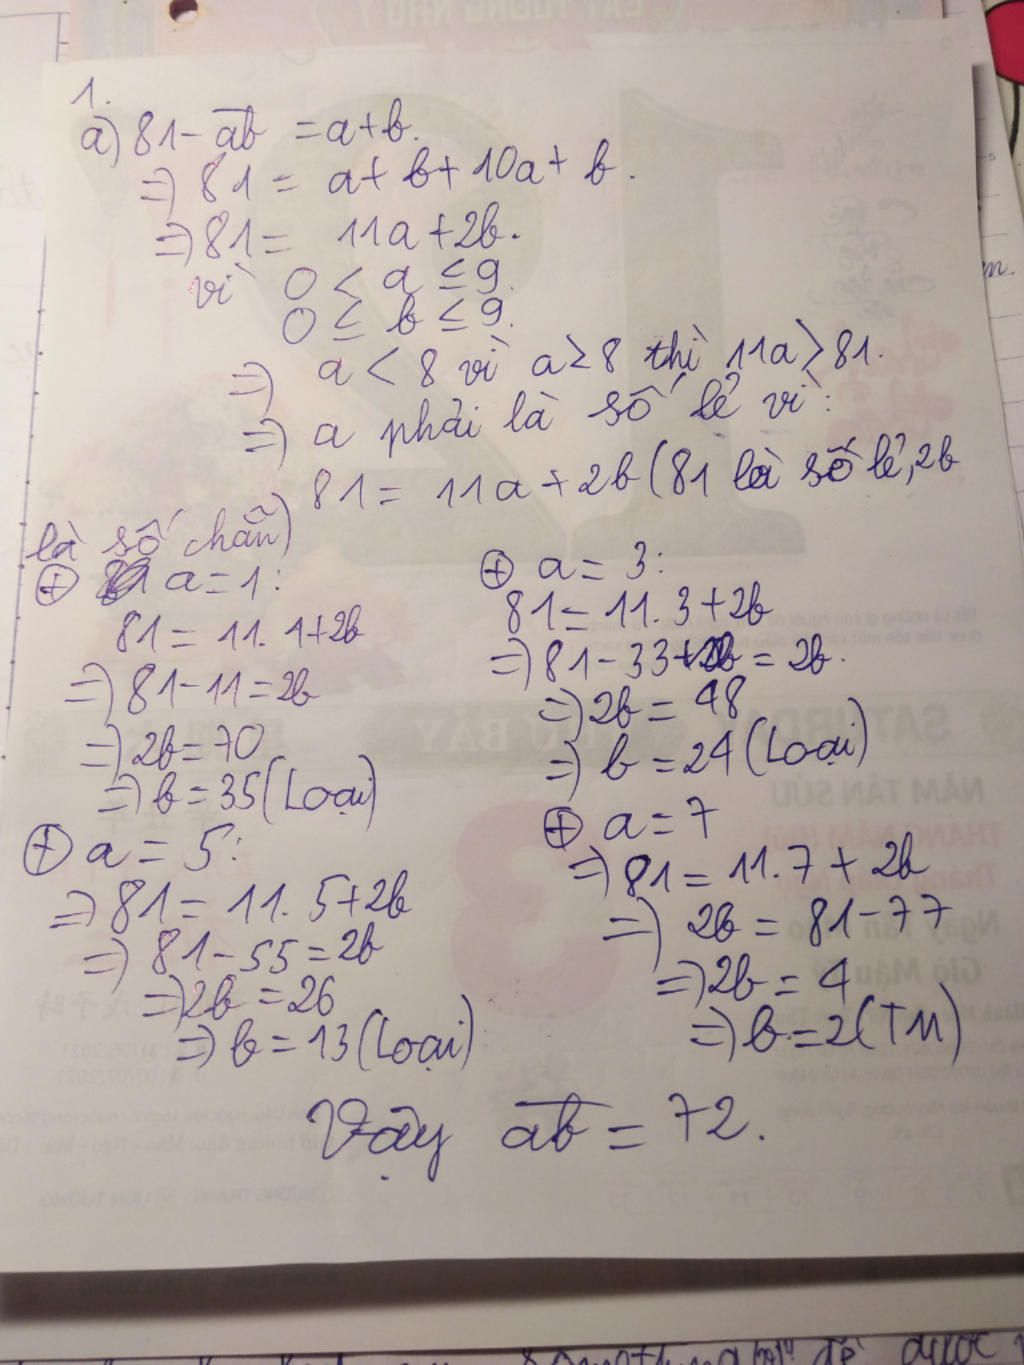 1.
a) 81 - ab = a + b.
=> 81 = a + b + 10a + b.
=> 81 = 11a + 2b.
vì 0 < a ≤ 9.
0 ≤ b ≤ 9.
=> a < 8 vì a ≥ 8 thì 11a > 81.
=> a phải là số lẻ vì:
81 = 11a + 2b (81 là số lẻ, 2b
là số chẵn)
⊕ a = 1:
81 = 11.1 + 2b
=> 81 - 11 = 2b
=> 2b = 70
=> b = 35 (Loại)
⊕ a = 3:
81 = 11.3 + 2b
=> 81 - 33 = 2b.
=> 2b = 48
=> b = 24 (Loại)
⊕ a = 5:
=> 81 = 11.5 + 2b
=> 81 - 55 = 2b
=> 2b = 26
=> b = 13 (Loại)
⊕ a = 7
=> 81 = 11.7 + 2b
=> 2b = 81 - 77
=> 2b = 4
=> b = 2 (TM)
Vậy ab = 72.